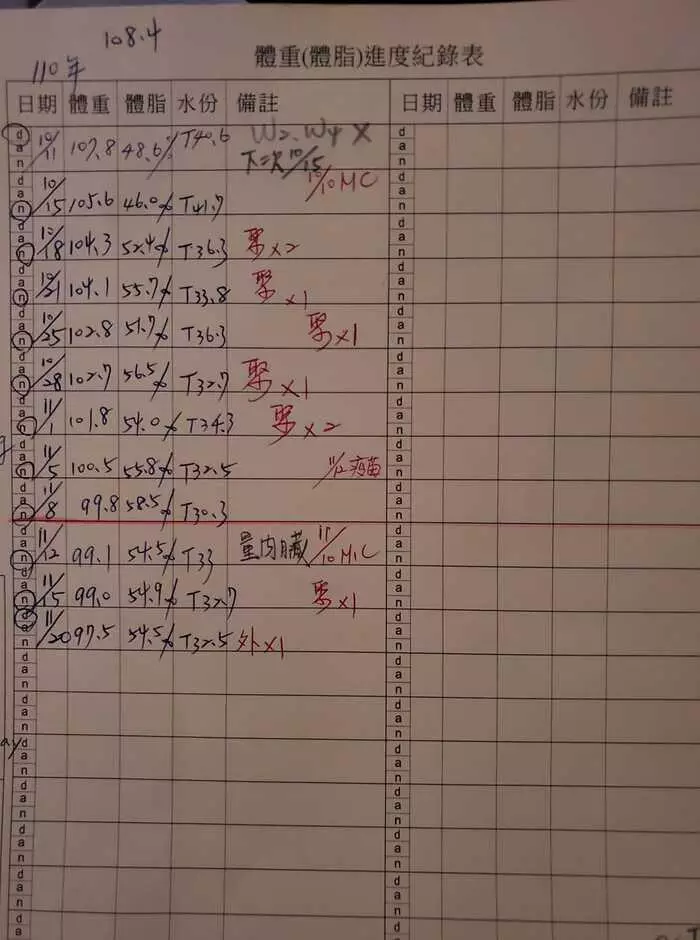 108.4
110年
體重(體脂)進度紀錄表
日期 體重 體脂 水份 備註 日期 體重 體脂 水份 備註
10/11 107.8 48.6% T40.6 W2.W4 X
下次 10/15
10/10 MC
10/15 105.6 46.0% T41.7
10/18 104.3 52.4% T36.3 聚x2
10/21 104.1 55.7% T33.8 聚x1
10/25 102.8 51.7% T36.3 聚x1
10/28 102.7 56.5% T32.7 聚x1
11/1 101.8 54.0% T34.3 聚x2
11/5 100.5 55.8% T32.5 11/2疫苗
11/8 99.8 58.5% T30.3
11/12 99.1 54.5% T33 量內臟 11/10 M.C
11/15 99.0 54.9% T32.7 聚x1
11/20 97.5 54.5% T32.5 外x1